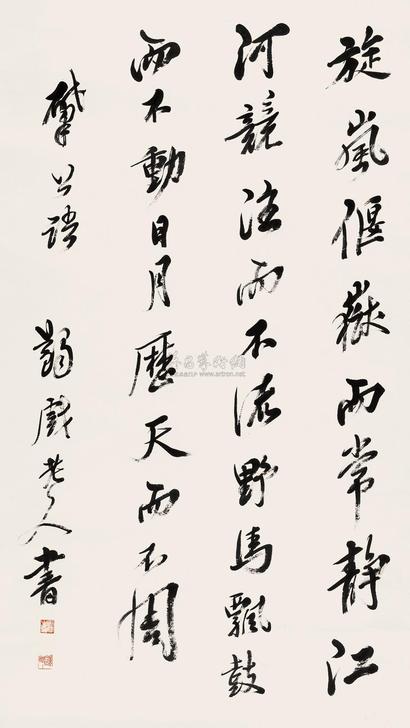 旋嵐偃嶽而常靜江
河競注而不流野馬飄鼓
而不動日月歷天而不周
肇公語 蠲戲老人書
www.artron.net